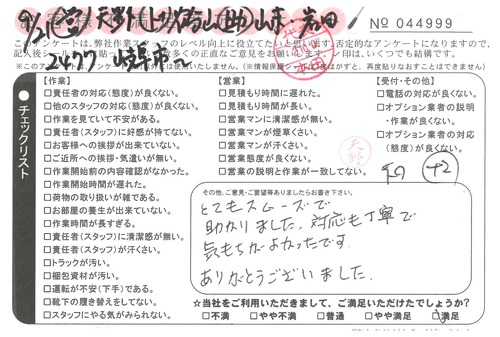 No 044999
このアンケートは、弊社作業スタッフのレベル向上に役立てたいと思います。否定的なアンケートになりますので、
2477 岐阜市
チェックリスト
【作業】
□責任者の対応(態度)が良くない。
□他のスタッフの対応(態度)が良くない。
□作業を見ていて不安がある。
□責任者(スタッフ)に好感が持てない。
□お客様への挨拶が出来ていない。
□ご近所への挨拶・気遣いが無い。
□作業開始前の内容確認がなかった。
□作業開始時間が遅れた。
□荷物の取り扱いが雑である。
□お部屋の養生が出来ていない。
□作業時間が長すぎる。
□責任者(スタッフ)に清潔感が無い。
□責任者(スタッフ)が汗くさい。
□トラックが汚い。
□梱包資材が汚い。
□運転が不安(下手)である。
□靴下の履き替えをしてない。
□スタッフにやる気がみられない。
【営業】
□見積もり時間に遅れた。
□見積もり時間が長い。
□営業マンに清潔感が無い。
□営業マンが煙草くさい。
□営業マンが汗くさい。
□営業態度が良くない。
□営業の説明と作業が一致してない。
【受付・その他】
□電話の対応が良くない。
□オプション業者の説明
・作業が良くない。
□オプション業者の対応
(態度)が良くない。
天野
+2
その他、ご意見・ご要望等ありましたらお書き下さい。
とてもスムーズで
助かりました。対応も丁寧で
気もちがよかったです。
ありがとうございました。
☆当社をご利用いただきまして、ご満足いただけたでしょうか?
□不満 □やや不満 □普通 □やや満足 □満足